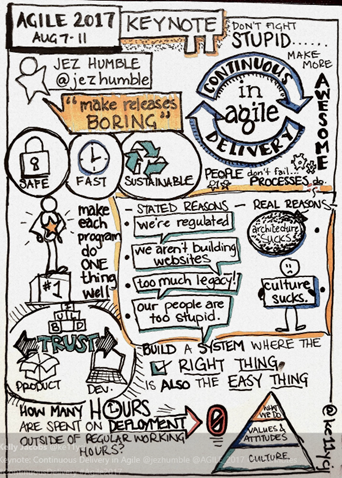 AGILE 2017
AUG 7-11
KEYNOTE
DON'T FIGHT
STUPID......
MAKE
MORE
AWESOME
JEZ HUMBLE
@jezhumble
"make releases
BORING"
CONTINUOUS
in
agile
DELIVERY
SAFE
FAST
SUSTAINABLE
PEOPLE don't fail...
PROCESSES do.
make
each
program
do
ONE
thing
well"
#1
STATED REASONS
REAL REASONS
we're regulated
we aren't building
websites
too much legacy!
our people are
too stupid.
architecture
SUCKS.
culture
sucks.
BUILD
TRUST
PRODUCT
DEV.
BUILD A SYSTEM WHERE THE
RIGHT THING
IS ALSO THE EASY THING
HOW MANY HOURS
ARE SPENT ON DEPLOYMENT
OUTSIDE OF REGULAR WORKING
HOURS?
0
WHAT
WE DO
VALUES &
ATTITUDES
CULTURE
Keynote: Continuous Delivery in Agile @jezhumble